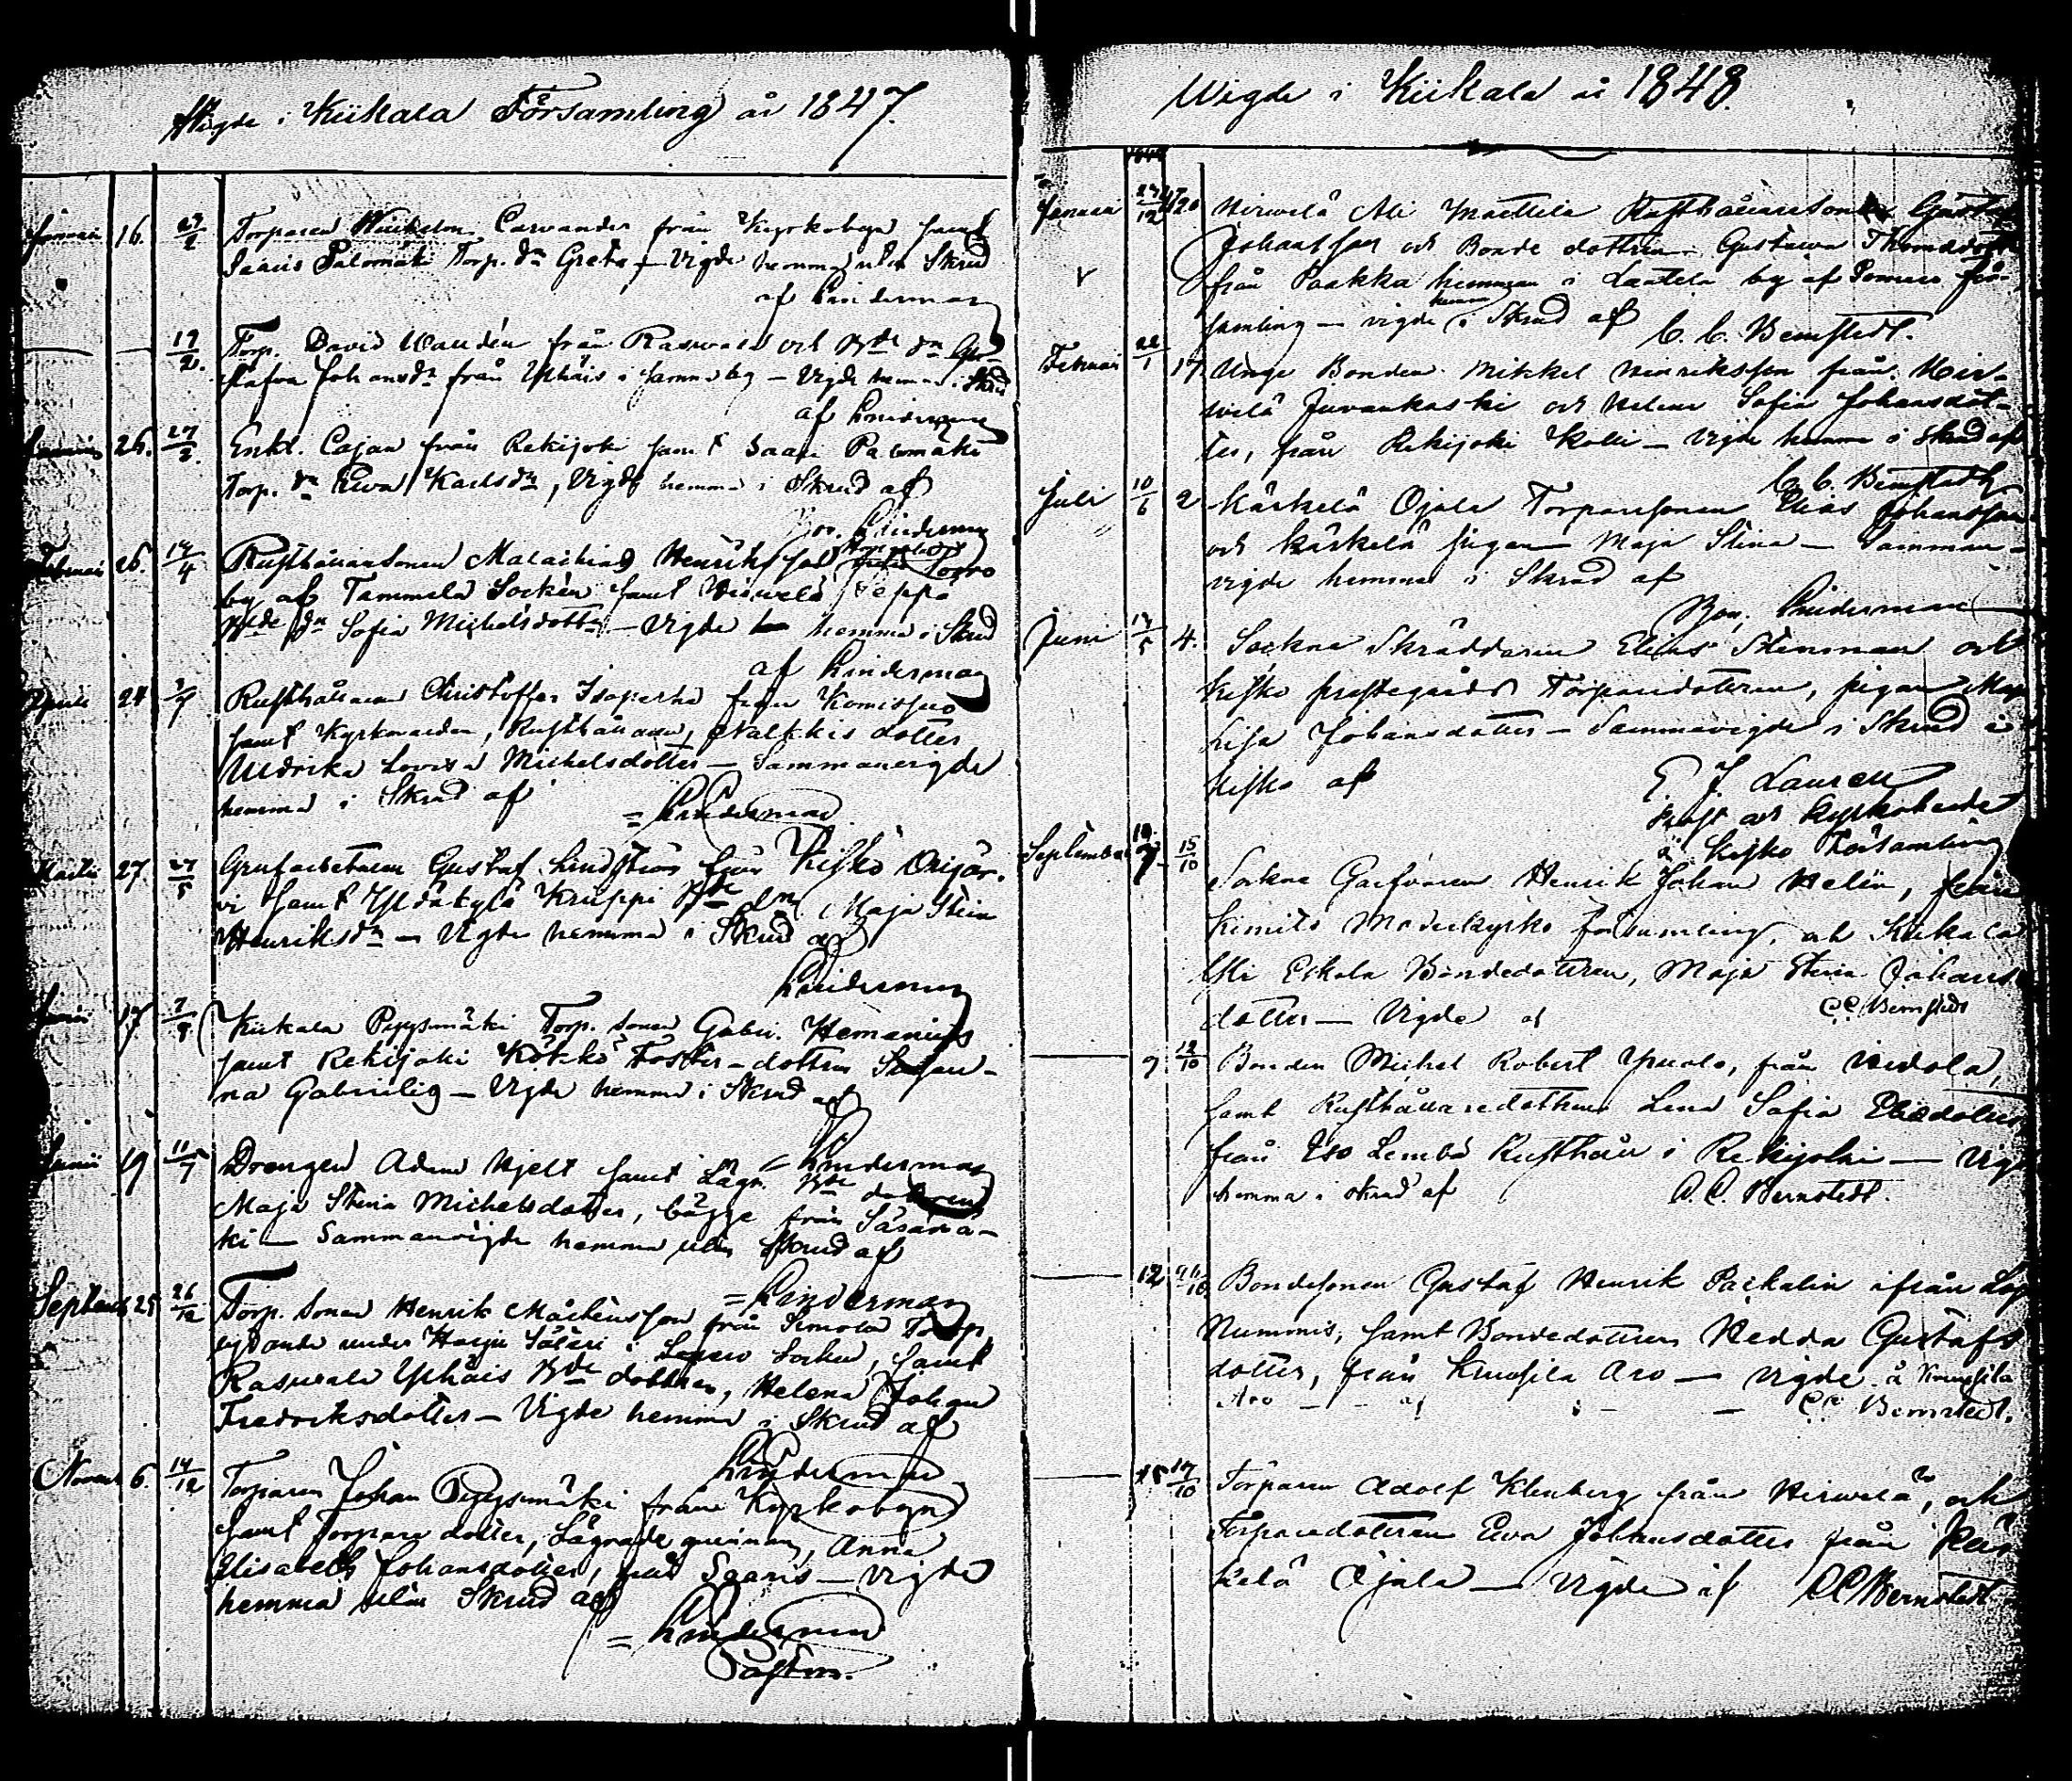 Wigde i Kiikala Församling år 1847.
16. 27/2 Torparen Wilhelm Carvander från Kyrkobyn samt
Saaris Palomäki Torp. dn Greta – Vigde hemma utan Skrud
af Linderman
19/2. Torp. David från Rasvala och Bde dn
stafva Johansdn från Yhäis i samma by – Vigde hemma i Skrud
af Linderman
26. 27/3. Enkl. Cajan från Rekijoki samt Saari Palomäki
Torp. dn Ewa Karlsdn, Vigde hemma i Skrud af
Linderman
Februari 26. 14/4 Rusthållaresonen Malachias Henriksson
by af Tammela Socken samt Wirvelä Seppä
Bde dn Sofia Michelsdotter – Vigde hemma i Skrud
af Linderman
Aprili 24 Rusthållaren Christoffer Isoperha från Komisuo
samt Kyrkvärden, Rusthållaren, Nalkkis dotter
Uldrika Lovisa Michelsdotter – Sammanvigde
hemma i Skrud af
= Linderman
Martii 27. 27/5 Grufarbetaren Gustaf Lindström från Kisko Orijär-
vi samt Yldäkylä Kruppi Bde dn Maja Stina
Henriksdn – Vigde hemma i Skrud af
Linderman
17. Kiikala Pyysmäki Torp. sonen Gabr. Hemanius
samt Rekijoki Kökkö Foster-dottren Susan-
na Gabrielig – Vigde hemma i Skrud af
= Linderman
19 11/7 Drängen Adam Hjelt samt Lägr. Bde dottren
Maja Stina Michelsdotter, bägge från Säsämä-
ki – Sammanvigde hemma utan Skrud af
= Linderman
Septemb 25. 26/12 Torp. sonen Henrik Mårtensson från Simola Torp
lydande under Harju Säteri i Socken, samt
Rasvala Yhäis Bde dottren, Helena Johan
Fredriksdotter – Vigde hemma i Skrud af
Linderman
Novemb 6. 14/12 Torparen Johan Pyysmäki från Kyrkobyn
samt Torpare dotter, Lägrade qvinnan, Anna
Elisabeth Johansdotter, från Saaris – vigde
hemma utan Skrud af
= Linderman
Pastor.
Wigde i Kiikala år 1848.
Januari 27/12 Hirvelä Ali Mattila Rusthållaresonen Gustaf
Johansson och Bonde dottren Gustava Thomasdotter
från Paakka hemman i Lautela by af Somero för-
samling – vigde hemma i Skrud af
C. C. Bernstedt.
Februari 22/1 17 Unge Bonden Mikkel Henriksson från Hir-
velä Juvankoski och Helena Sofia Johansdot-
ter, från Rekijoki Kolli – Vigde hemma i skrud af
C. C. Bernstedt
Juli 10/6 2 Kärkelä Ojala Torparesonen Elias Johansson
och Kärkelä pigan Maja Stina – Samman-
vigde hemma i Skrud af
Linderman
Juni 4. Sockne Skräddaren Elias Stenman och
Kisko prestegårds Torparedottren, pigan Maja
Lisa Johansdotter – Sammanvigde i Skrud i
Kisko af
E. J. Lauren
Prost och Kyrkoherde
i Kisko Församling
September 15/10 Sockne Garfvaren Henrik Johan Helin, från
Kimito Moderkyrko församling, och Kiikala
Yli Eskola Bondedottren, Maja Stina Johans
dotter – Vigde af C C Bernstedt
9 Bonden Michel Robert, från Vedola,
samt Rusthållaredottren Lena Sofia Eliedotter
från Iso Lemba Rusthåll i Rekijoki – Vigde
hemma i skrud af C. C. Bernstedt.
12 Bondesonen Gustaf Henrik Packalin ifrån Lojo
Nummis, samt Bondedottren Hedda Gustafs
dotter, från Kruusila Aro – Vigde å Kruusila
Aro – af – C C Bernstedt.
15 17/10 Torparen Adolf Klenberg från Hirvelä, och
Torparedottren Ewa Johansdotter från Kär
kelä Ojala – Vigde af C C Bernstedt